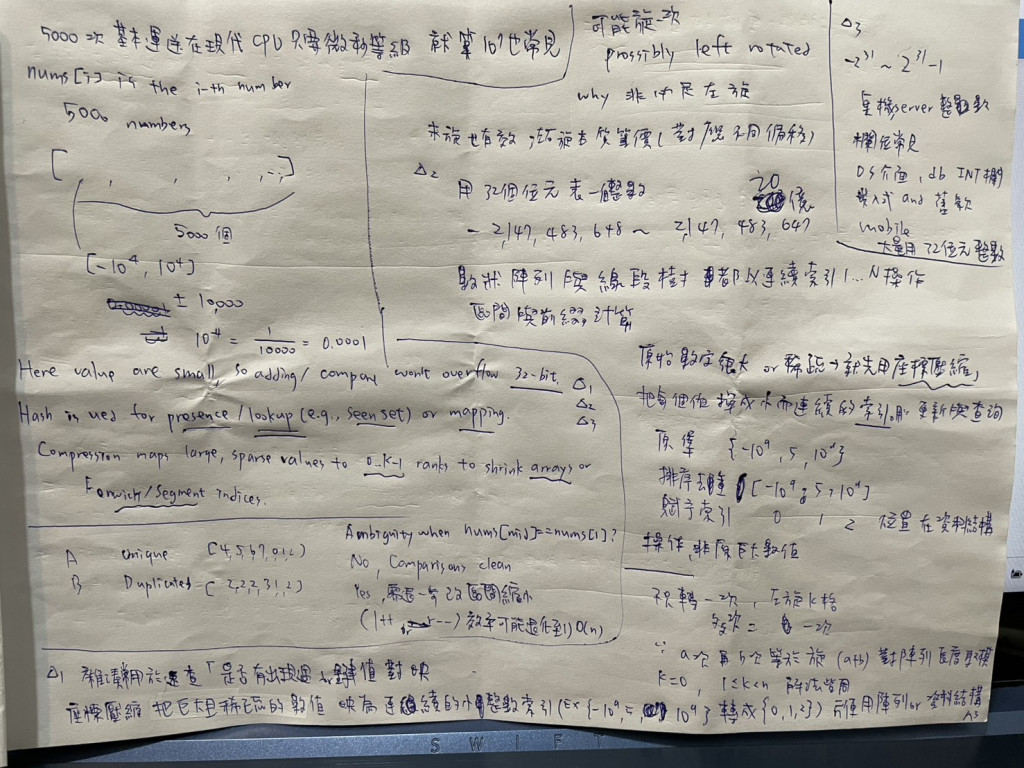 5000次 基本運算在現代 CPU 只要微秒等級 就算 10⁷ 也常見
nums[i] is the i-th number
5000 numbers
[ , , , , ... ]
5000 個
[-10⁴, 10⁴]
± 10,000
10⁻⁴ = 1/10000 = 0.0001
可能旋一次
possibly left rotated
why 非必定左旋
未旋也有效
等價 (對
不同偏移)
△2
用 32個位元表一整數
20億
- 2,147,483,648 ~ 2,147,483,647
樹狀陣列與線段樹 都以連續索引 1...N 操作
區間與前綴計算
△3
-2³¹ ~ 2³¹-1
server 整數
欄位常見
OS介面, db INT欄
嵌入式 and 舊款
mobile
大量用 32位元整數
Here value are small, so adding/compare won't overflow 32-bit. △1
Hash is used for presence/lookup (e.g., seen set) or mapping. △2
△3
Compression maps large, sparse values to 0..k-1 ranks to shrink arrays or
Fenwick/Segment indices.
原始數字很大 or 稀疏→就先用座標壓縮,
把每個值換成小而連續的索引,
更新與查詢
原集 {-10⁹, 5, 10⁹}
排序去重 [-10⁹, 5, 10⁹]
賦予索引 0 1 2 位置在資料結構
操作,非原巨大數值
A unique [4,5,6,7,0,1,2]
B Duplicated [2,2,2,3,1,2]
Ambiguity when nums[mid]==nums[l]?
No, Comparisons clean
Yes, 需進一步 區間縮小
(l++, r--) 效率可能退化到 O(n)
只轉一次, 左旋 k 格
多次 = 一次
∵ a次再 b次等於旋 (a+b) 對陣列長度取模
k=0, 1≤k<n 解法皆同
△1 雜湊用於速查「是否有出現過」 鍵值對映
座標壓縮 把巨大且稀疏的數值 映為連續的小整數索引 (Ex {-10⁹, 5, 10⁹} 轉成 {0,1,2}) 方便用陣列 or 資料結構
SWIFT